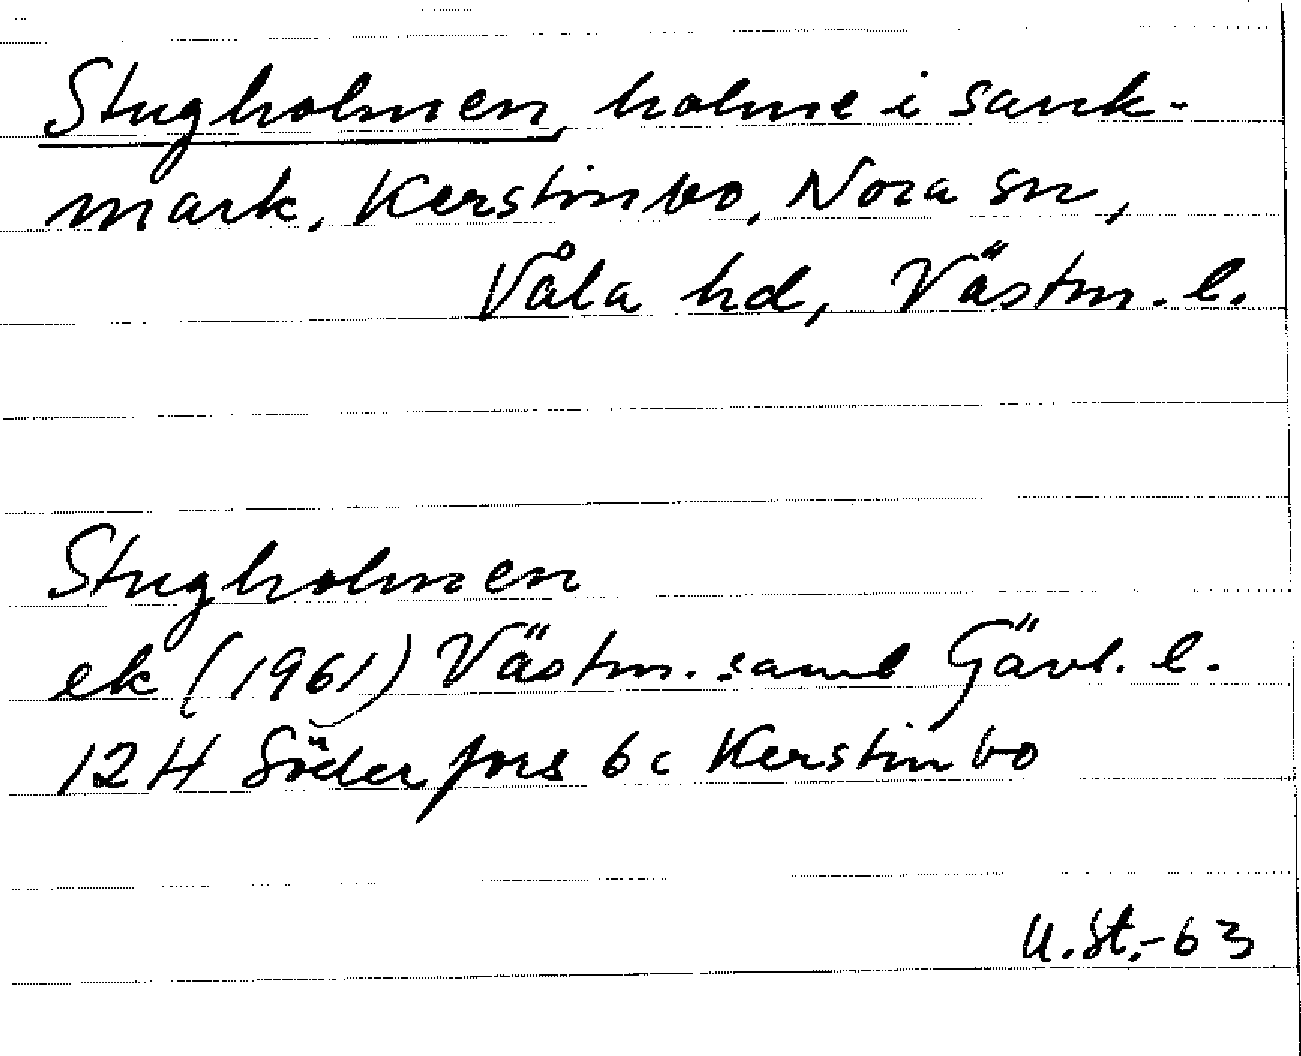 Stugholmen, holme i sank-
mark, Kerstinbo, Nora sn,
Våla hd, Västm. l.
Stugholmen
ek (1961) Västm. saml Gävl. l.
12H Söderfors 6c Kerstinbo
U.St.-63